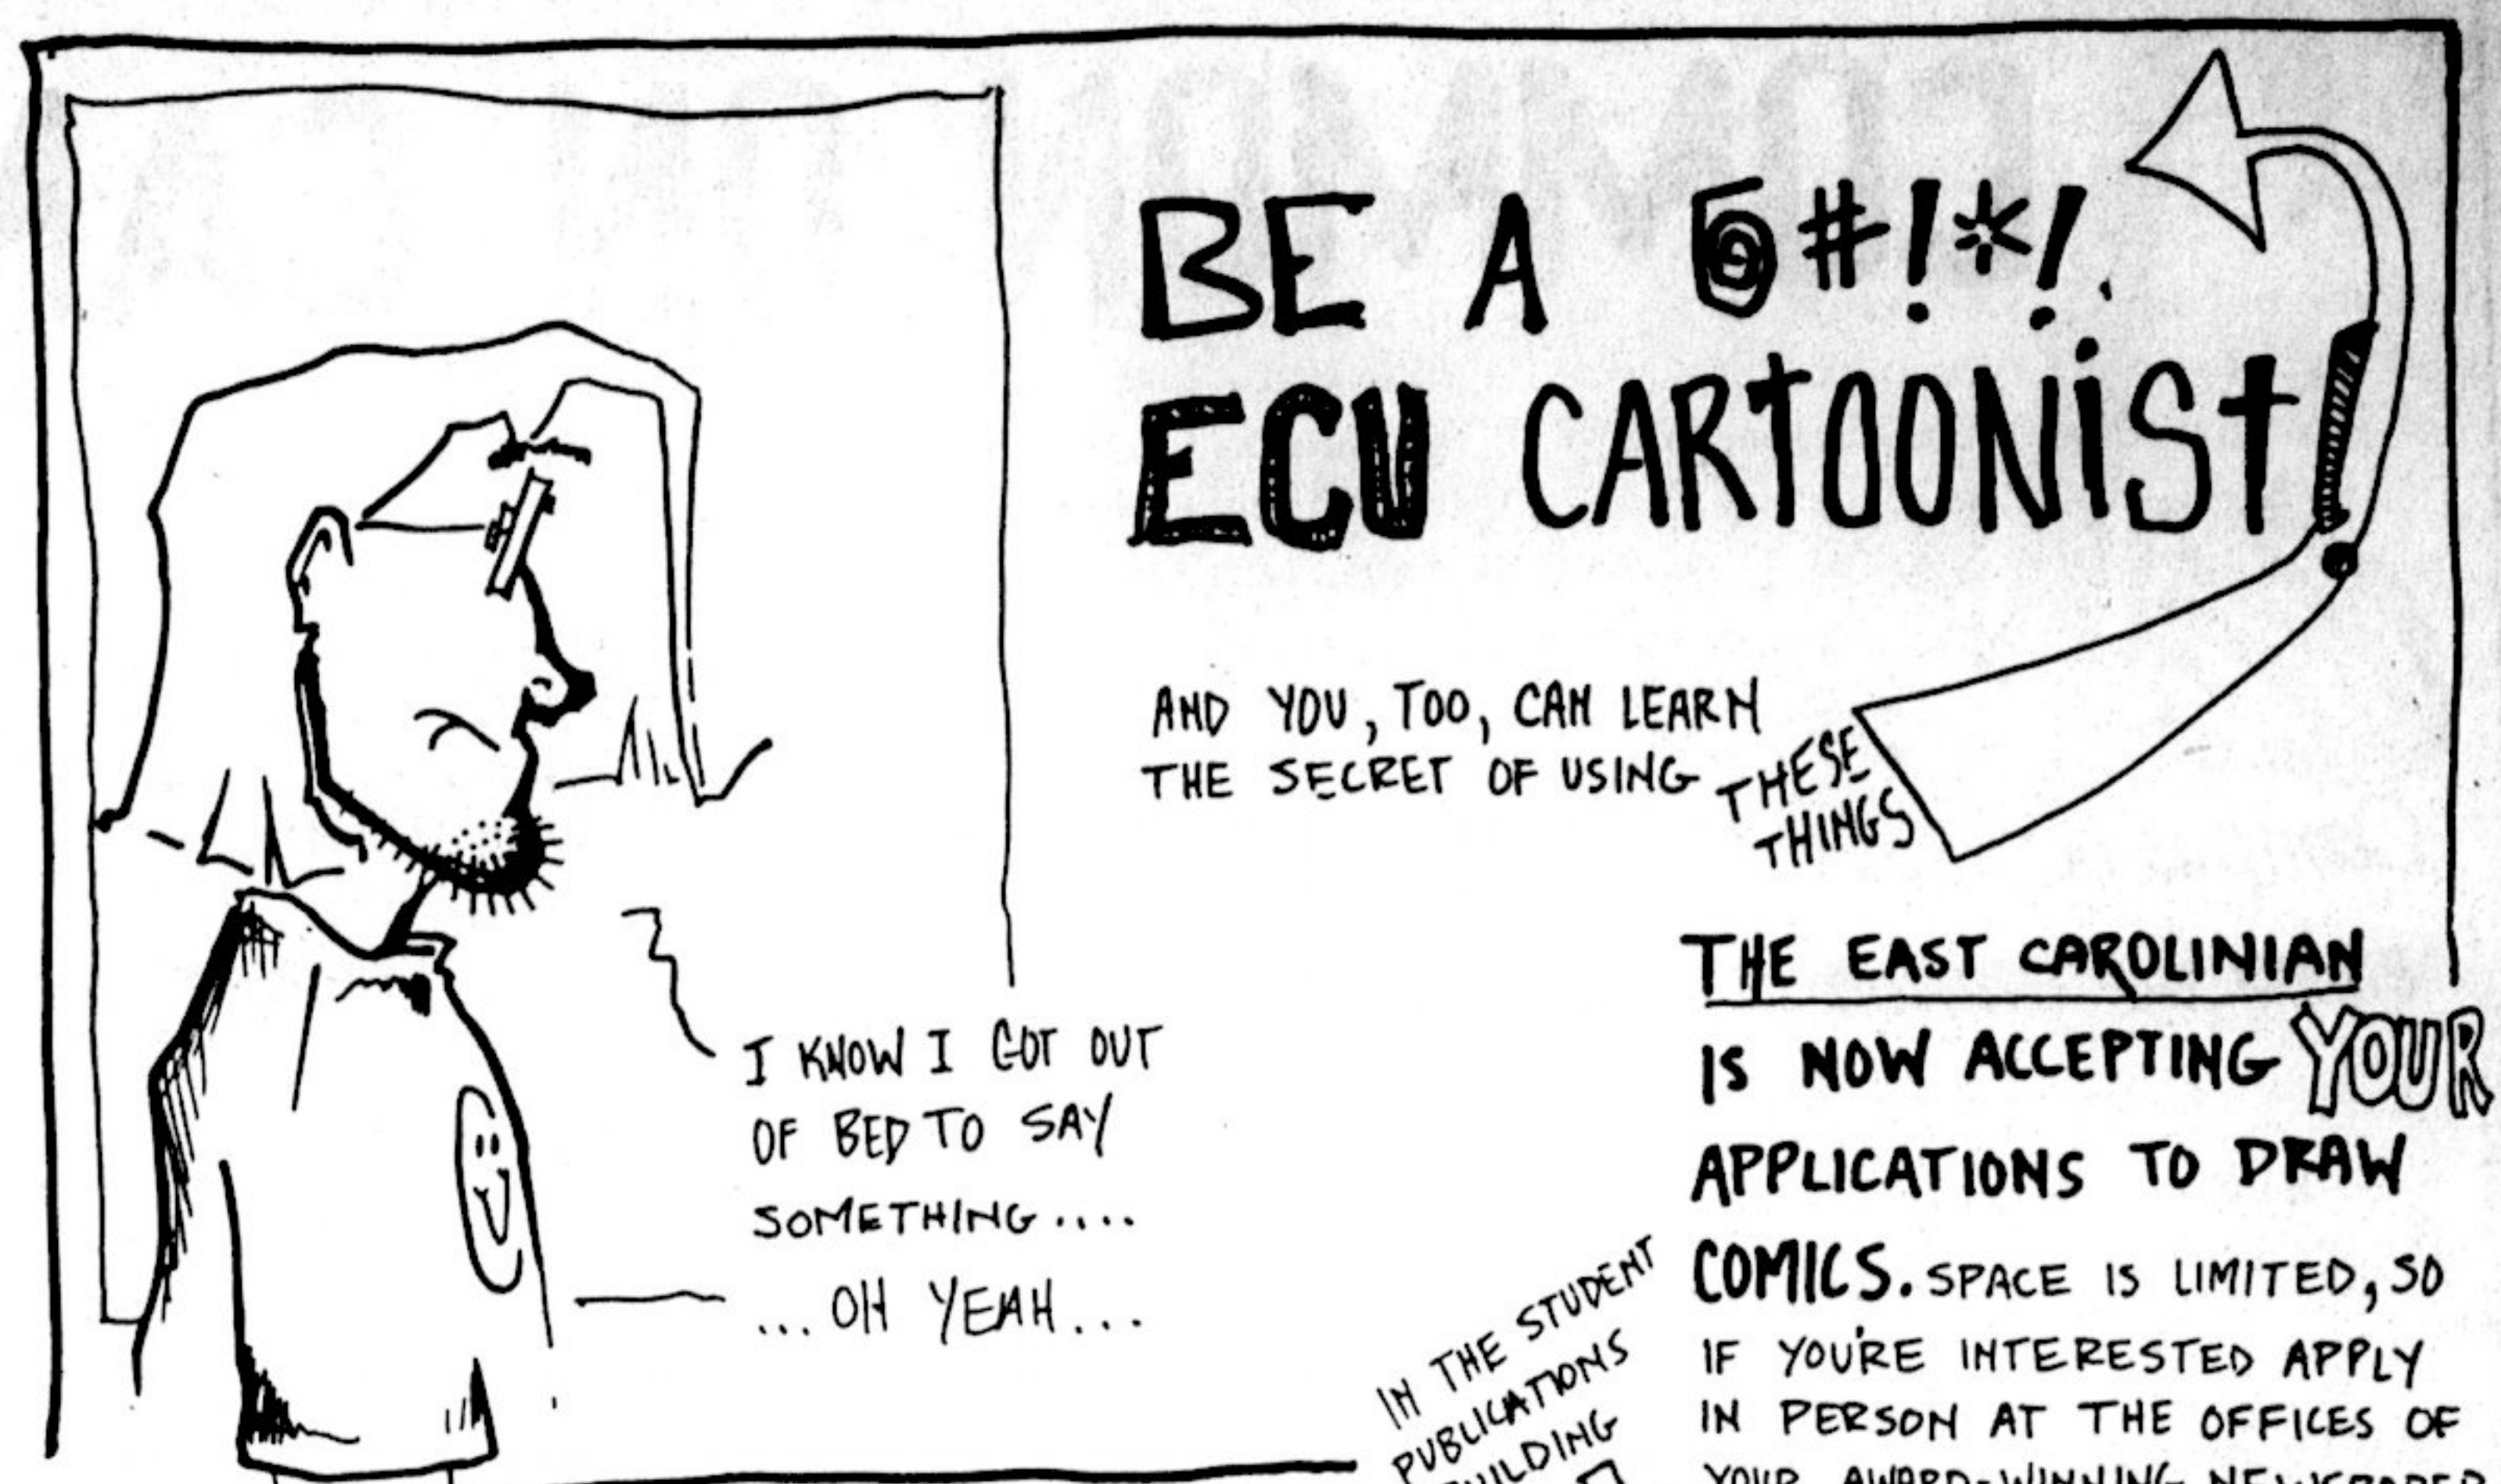 BE A @#!*!
ECU CARTOONiST!
AND YOU, TOO, CAN LEARN
THE SECRET OF USING
THESE
THINGS
I KNOW I GOT OUT
OF BED TO SAY
SOMETHING....
...OH YEAH...
THE EAST CAROLINIAN
IS NOW ACCEPTING YOUR
APPLICATIONS TO DRAW
COMICS. SPACE IS LIMITED, SO
IF YOU'RE INTERESTED APPLY
IN PERSON AT THE OFFICES OF
YOUR AWARD-WINNING NEWSPAPER
IN THE STUDENT
PUBLICATIONS
BUILDING